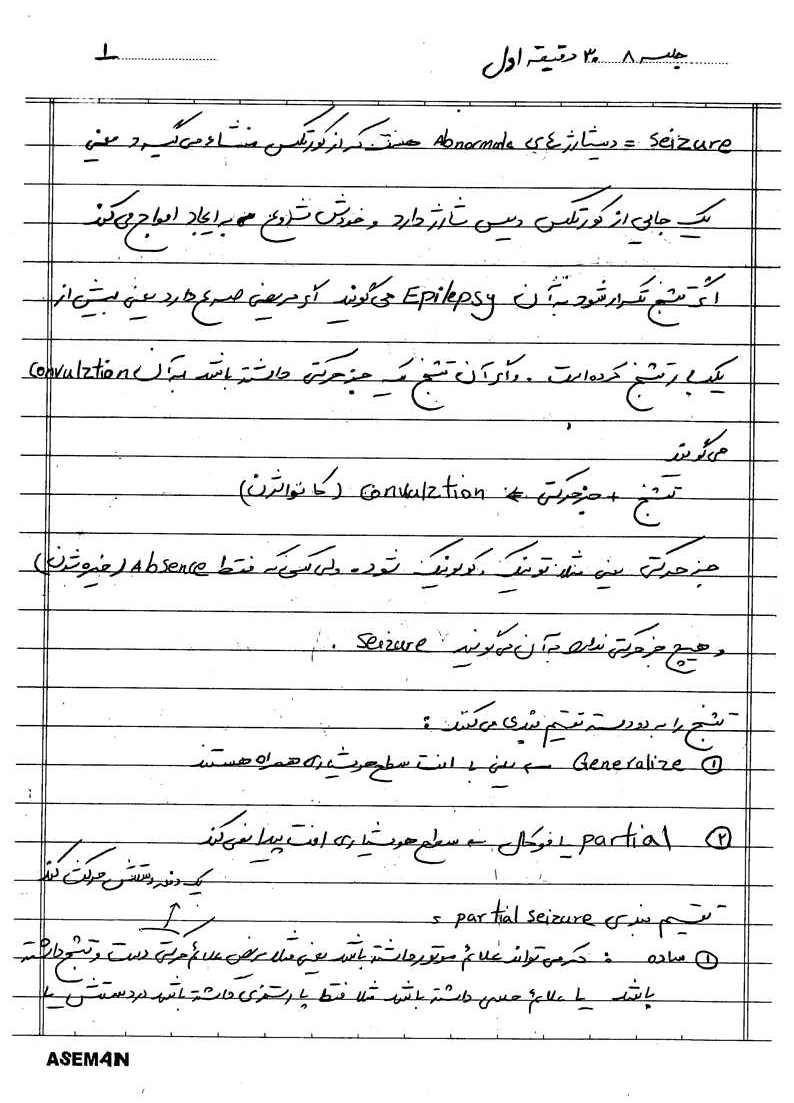 جلسه ۸ ۳۰ دقیقه اول
1
Seizure = دیشارژهای Abnormale هست که از کورتکس منشاء می‌گیرد یعنی
یک جایی از کورتکس دیس شارژ دارد و خودش شروع به ایجاد امواج می‌کند
اگر تشنج تکرار شود به آن Epilepsy می‌گویند اگر مریضی صرع دارد یعنی بیش از
یکبار تشنج کرده است . و اگر آن تشنج یک جز حرکتی داشته باشد به آن Convulztion
می‌گویند
تشنج + جز حرکتی ← Convulztion (کانوالژن)
جز حرکتی یعنی مثلا تونیک ، کولونیک شود . ولی کسی که فقط Absence (خیره شدن)
و هیچ جز حرکتی ندارد به آن می‌گویند Seizure .
تشنج را به دو دسته تقسیم بندی می‌کنند :
① Generalize → یعنی با افت سطح هوشیاری همراه هستند
② partial یا فوکال → سطح هوشیاری افت پیدا نمی‌کند
یک دفعه دستش حرکت کند
تقسیم بندی partial seizure :
① ساده : که می‌تواند علائم موتور داشته باشد یعنی مثلا مریض علائم حرکتی دست و تشنج داشته
باشد یا علائم حسی داشته باشد مثلا فقط پارستزی داشته باشد در دستش یا
ASEMAN